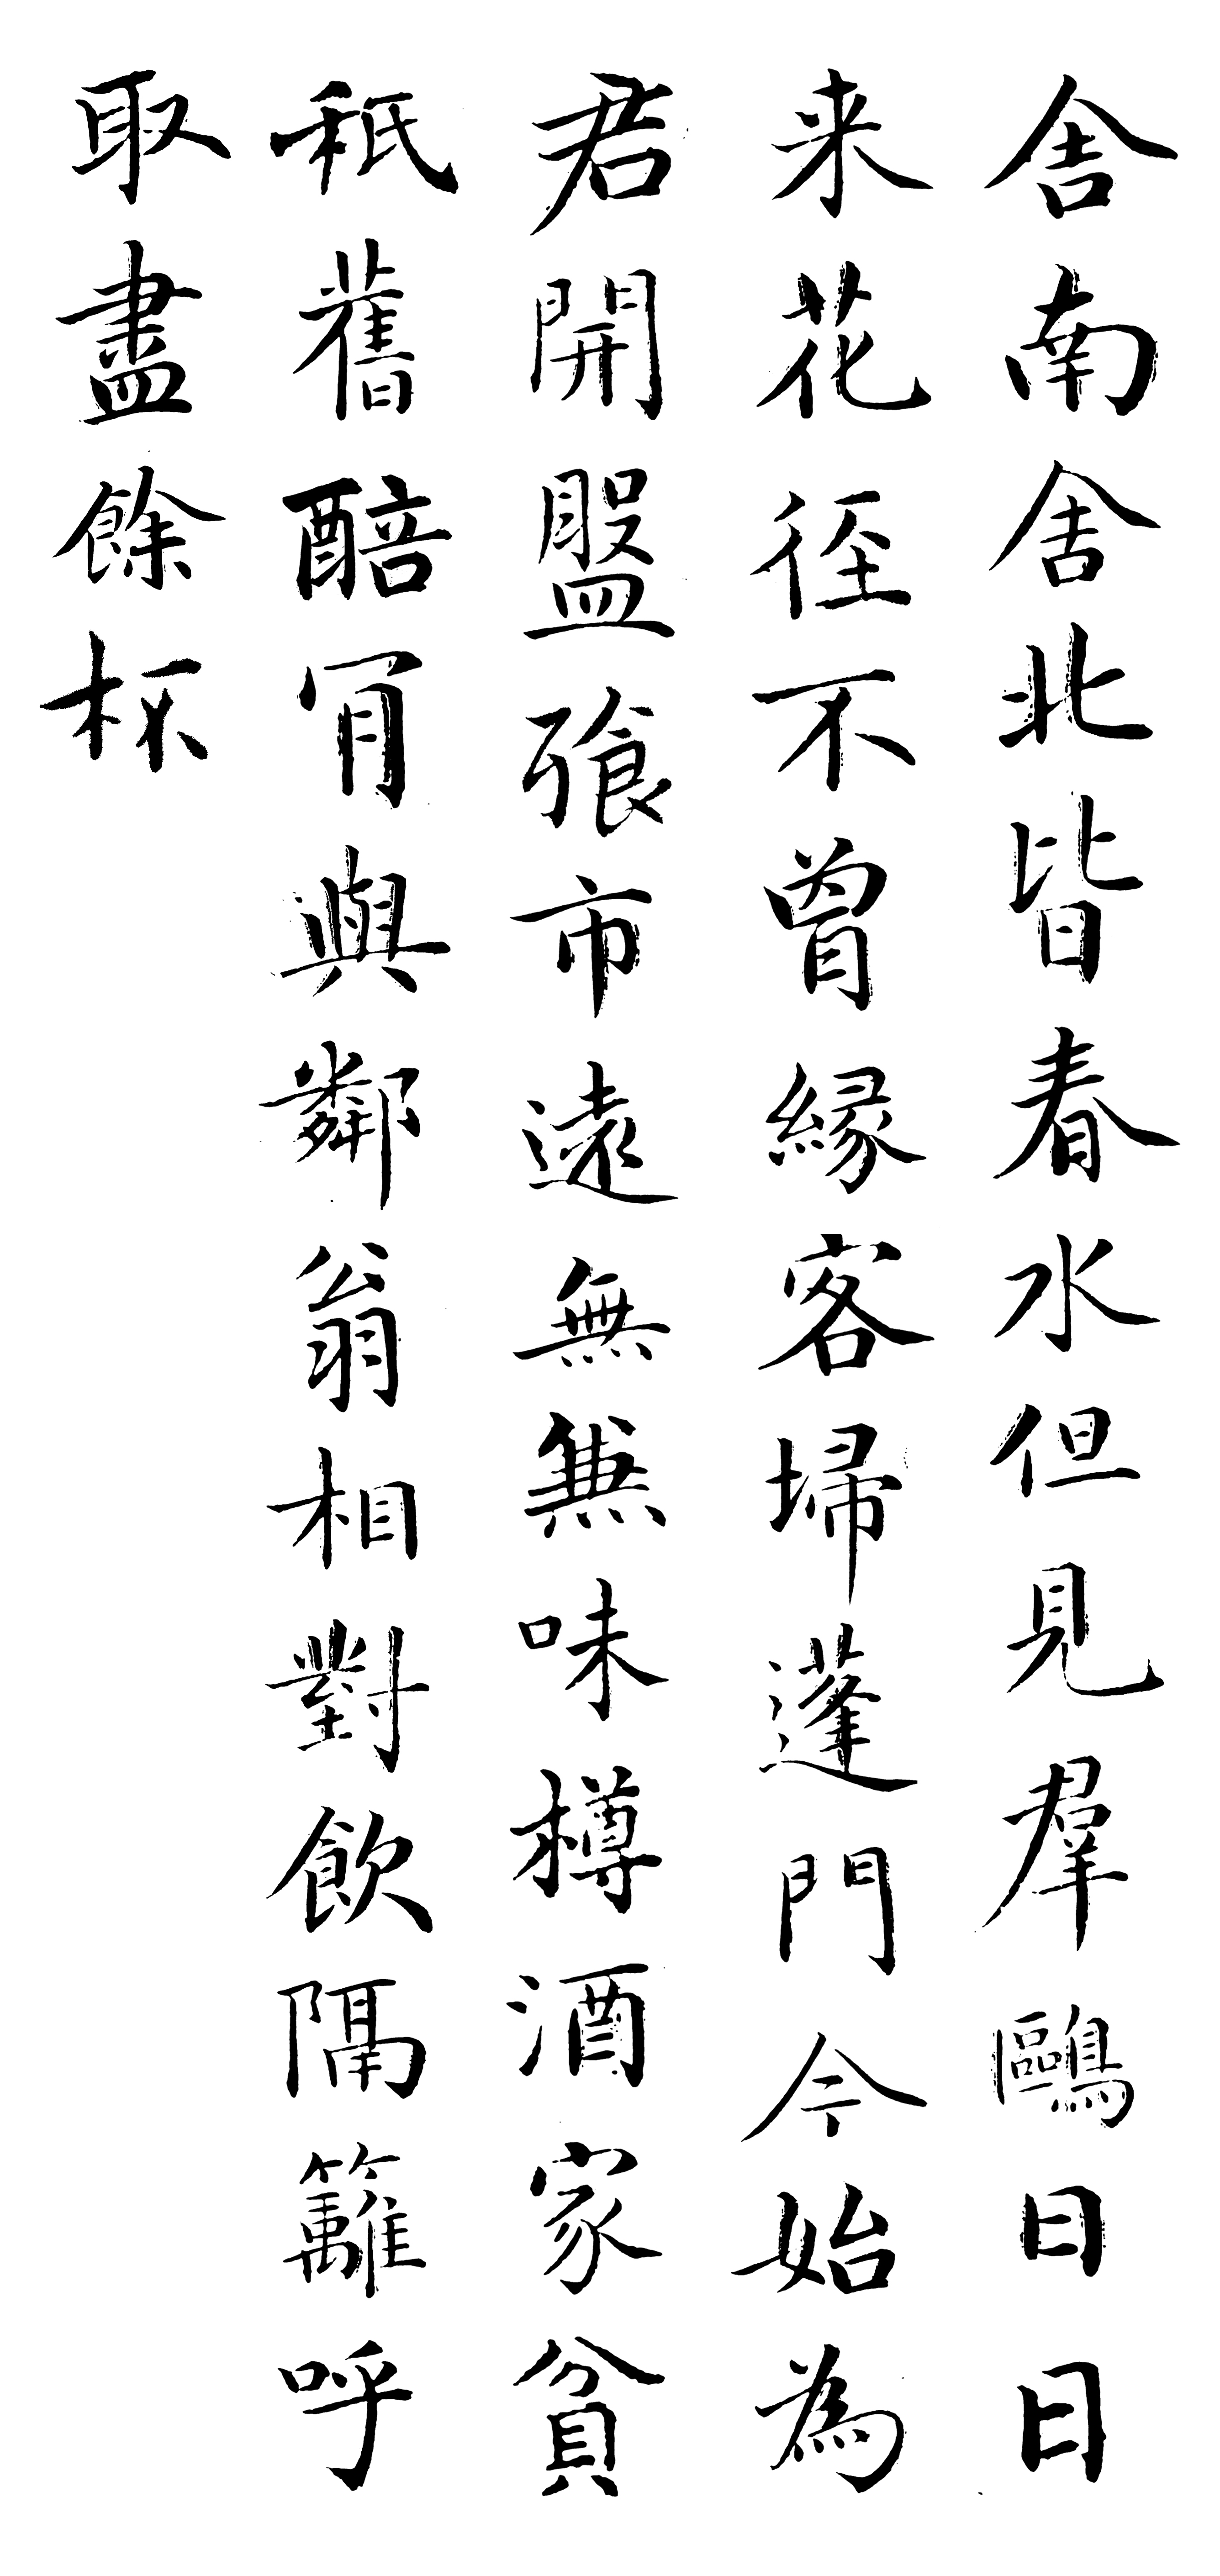 舍南舍北皆春水但見羣鷗日日
来花徑不曾緣客埽蓬門今始為
君開盤飱市遠無兼味樽酒家貧
秖舊醅肎與鄰翁相對飲隔籬呼
取盡餘杯